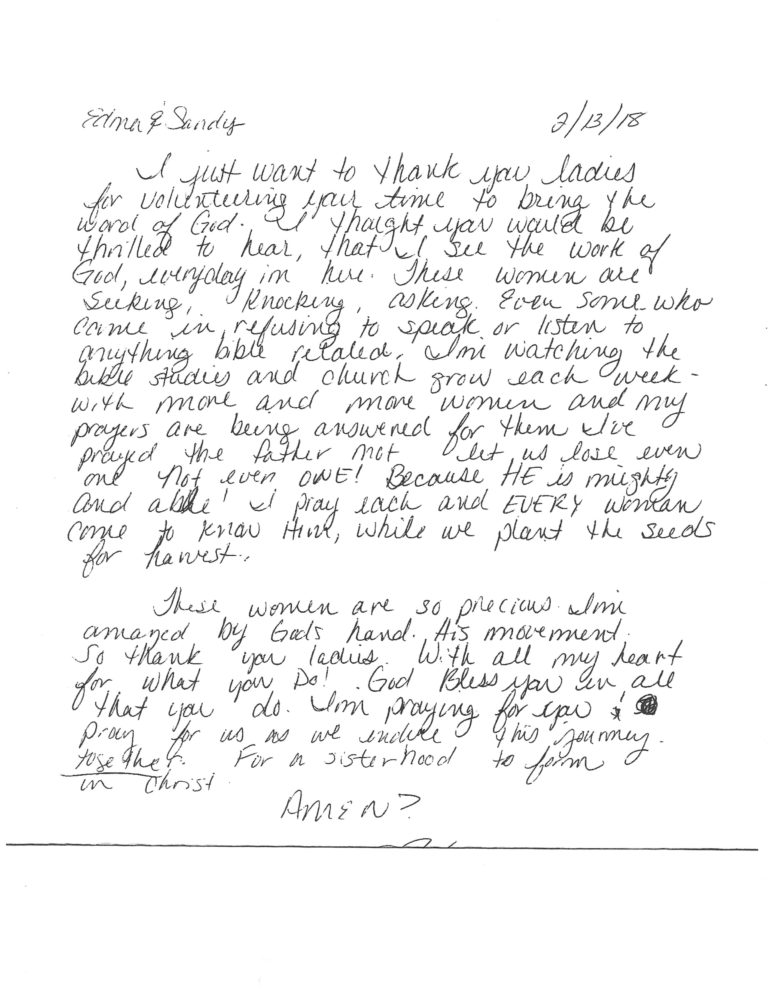 Edna & Sandy 2/13/18
I just want to thank you ladies
for volunteering your time to bring the
word of God. I thought you would be
thrilled to hear, that I see the work of
God, everyday in here. These women are
seeking, knocking, asking. Even some who
came in, refusing to speak or listen to
anything bible related. I'm watching the
bible studies and church grow each week -
with more and more women and my
prayers are being answered for them I've
prayed the father not let us lose even
one Not even ONE! Because HE is mighty
and able! I pray each and EVERY woman
come to know Him, while we plant the seeds
for harvest.
These women are so precious. I'm
amazed by Gods hand. His movement.
So thank you ladies. With all my heart
for what you Do! God Bless you in all
that you do. I'm praying for you &
pray for us as we endure this journey.
together. For a sisterhood to form
in Christ
AMEN?